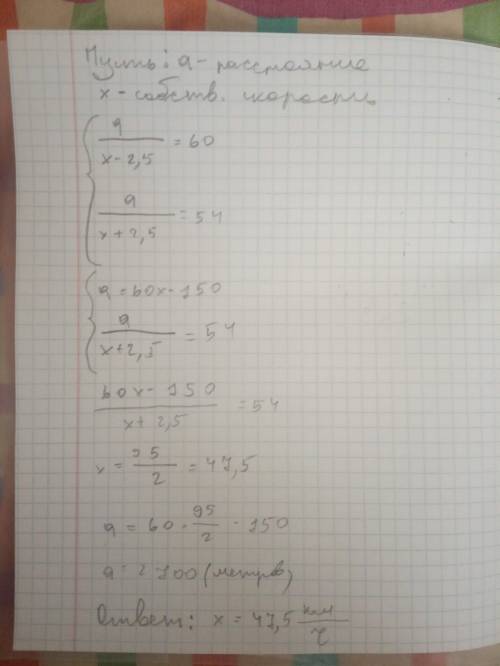 Пусть: a - расстояние
x - собств. скорость
a / (x - 2,5) = 60
a / (x + 2,5) = 54
a = 60x - 150
a / (x + 2,5) = 54
(60x - 150) / (x + 2,5) = 54
x = 95 / 2 = 47,5
a = 60 · 95 / 2 - 150
a = 2700 (метров)
Ответ: x = 47,5 км / ч